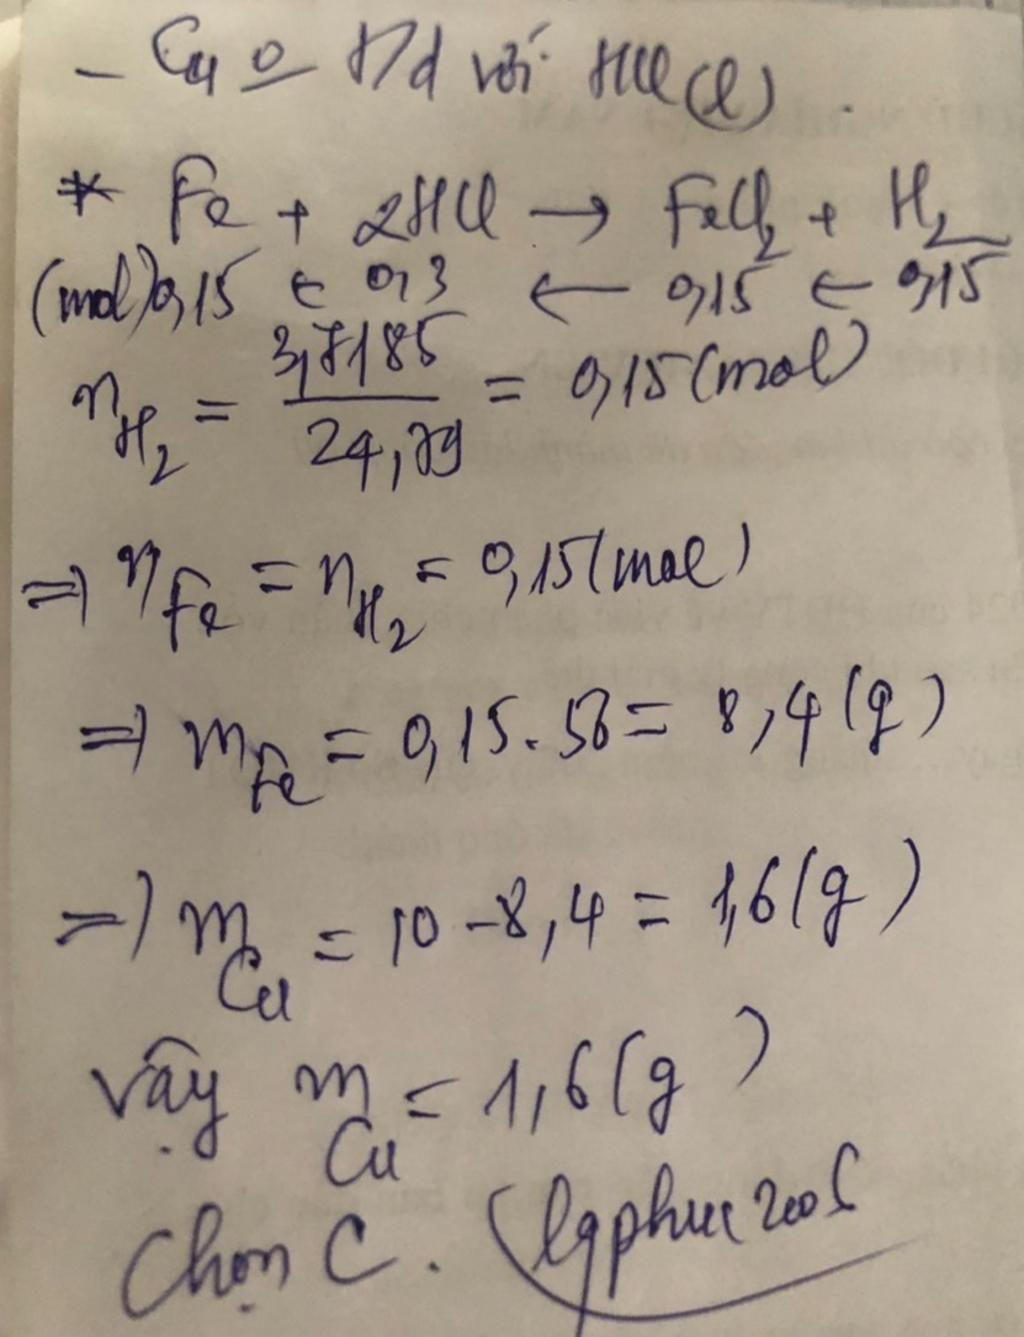 - Cu o t/d với HCl (l).
* Fe + 2HCl → FeCl₂ + H₂
(mol) 0,15 ← 0,3 ← 0,15 ← 0,15
n_H₂ = 3,7185 / 24,79 = 0,15 (mol)
⇒ n_Fe = n_H₂ = 0,15 (mol)
⇒ m_Fe = 0,15 . 56 = 8,4 (g)
⇒ m_Cu = 10 - 8,4 = 1,6 (g)
Vậy m_Cu = 1,6 (g)
Chọn C. lqphuc2005